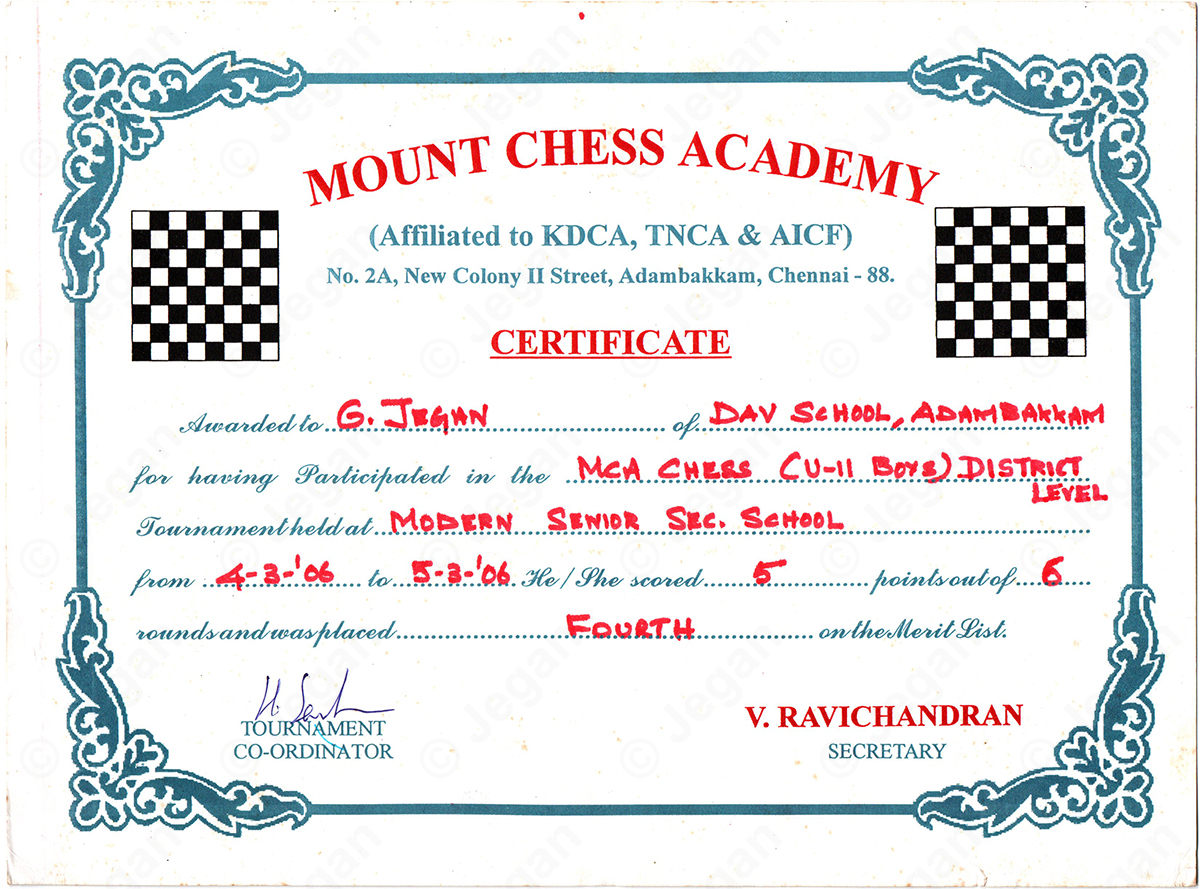 MOUNT CHESS ACADEMY
(Affiliated to KDCA, TNCA & AICF)
No. 2A, New Colony II Street, Adambakkam, Chennai - 88.
CERTIFICATE
Awarded to G. JEGAN of DAV SCHOOL, ADAMBAKKAM
for having Participated in the MCA CHESS (U-11 BOYS) DISTRICT
LEVEL
Tournament held at MODERN SENIOR SEC. SCHOOL
from 4-3-'06 to 5-3-'06 He/She scored 5 points out of 6
rounds and was placed FOURTH on the Merit List.
TOURNAMENT
CO-ORDINATOR
V. RAVICHANDRAN
SECRETARY
© Jegan